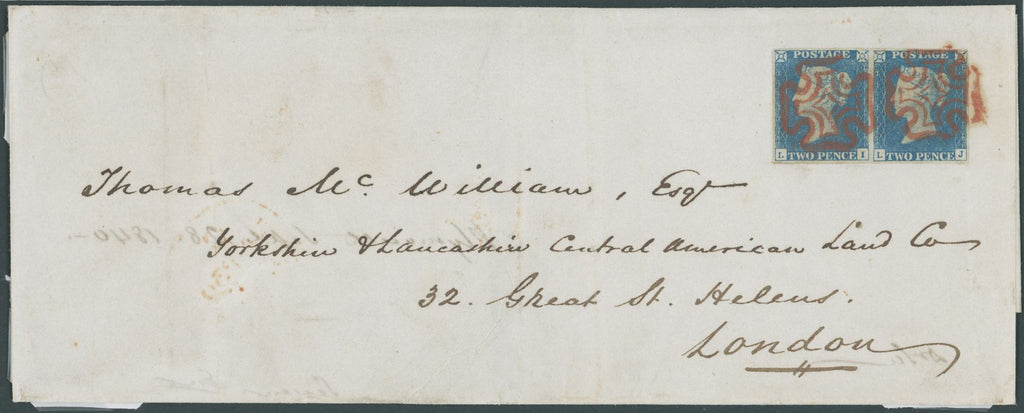 POSTAGE POSTAGE
L TWO PENCE I L TWO PENCE J
Thomas Mc. William, Esqr
Yorkshire & Lancashire Central American Land Co
32. Great St. Helens.
London
28 1840